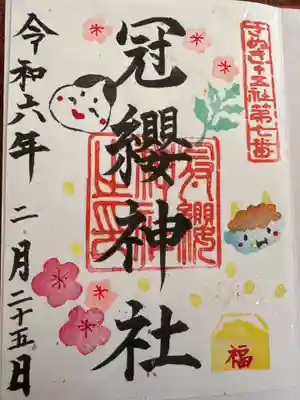 さぬき十五社第七番
冠纓神社
冠纓神社之印
令和六年二月二十五日
福